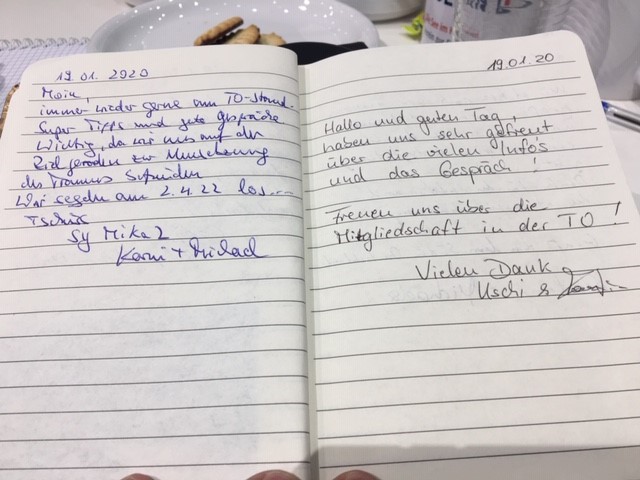 19.01.2020
Moin,
immer wieder gerne am TO-Stand.
Super Tipps und gute Gespräche
Wichtig, da wir uns auf der
Zielgeraden zur Umsetzung
des Traumes befinden
Wir segeln am 2.4.22 los...
Tschüs
Sy Mika 2
Karin + Michael
19.01.20
Hallo und guten Tag,
haben uns sehr gefreut
über die vielen Info's
und das Gespräch!
Freuen uns über die
Mitgliedschaft in der TO!
Vielen Dank
Uschi &